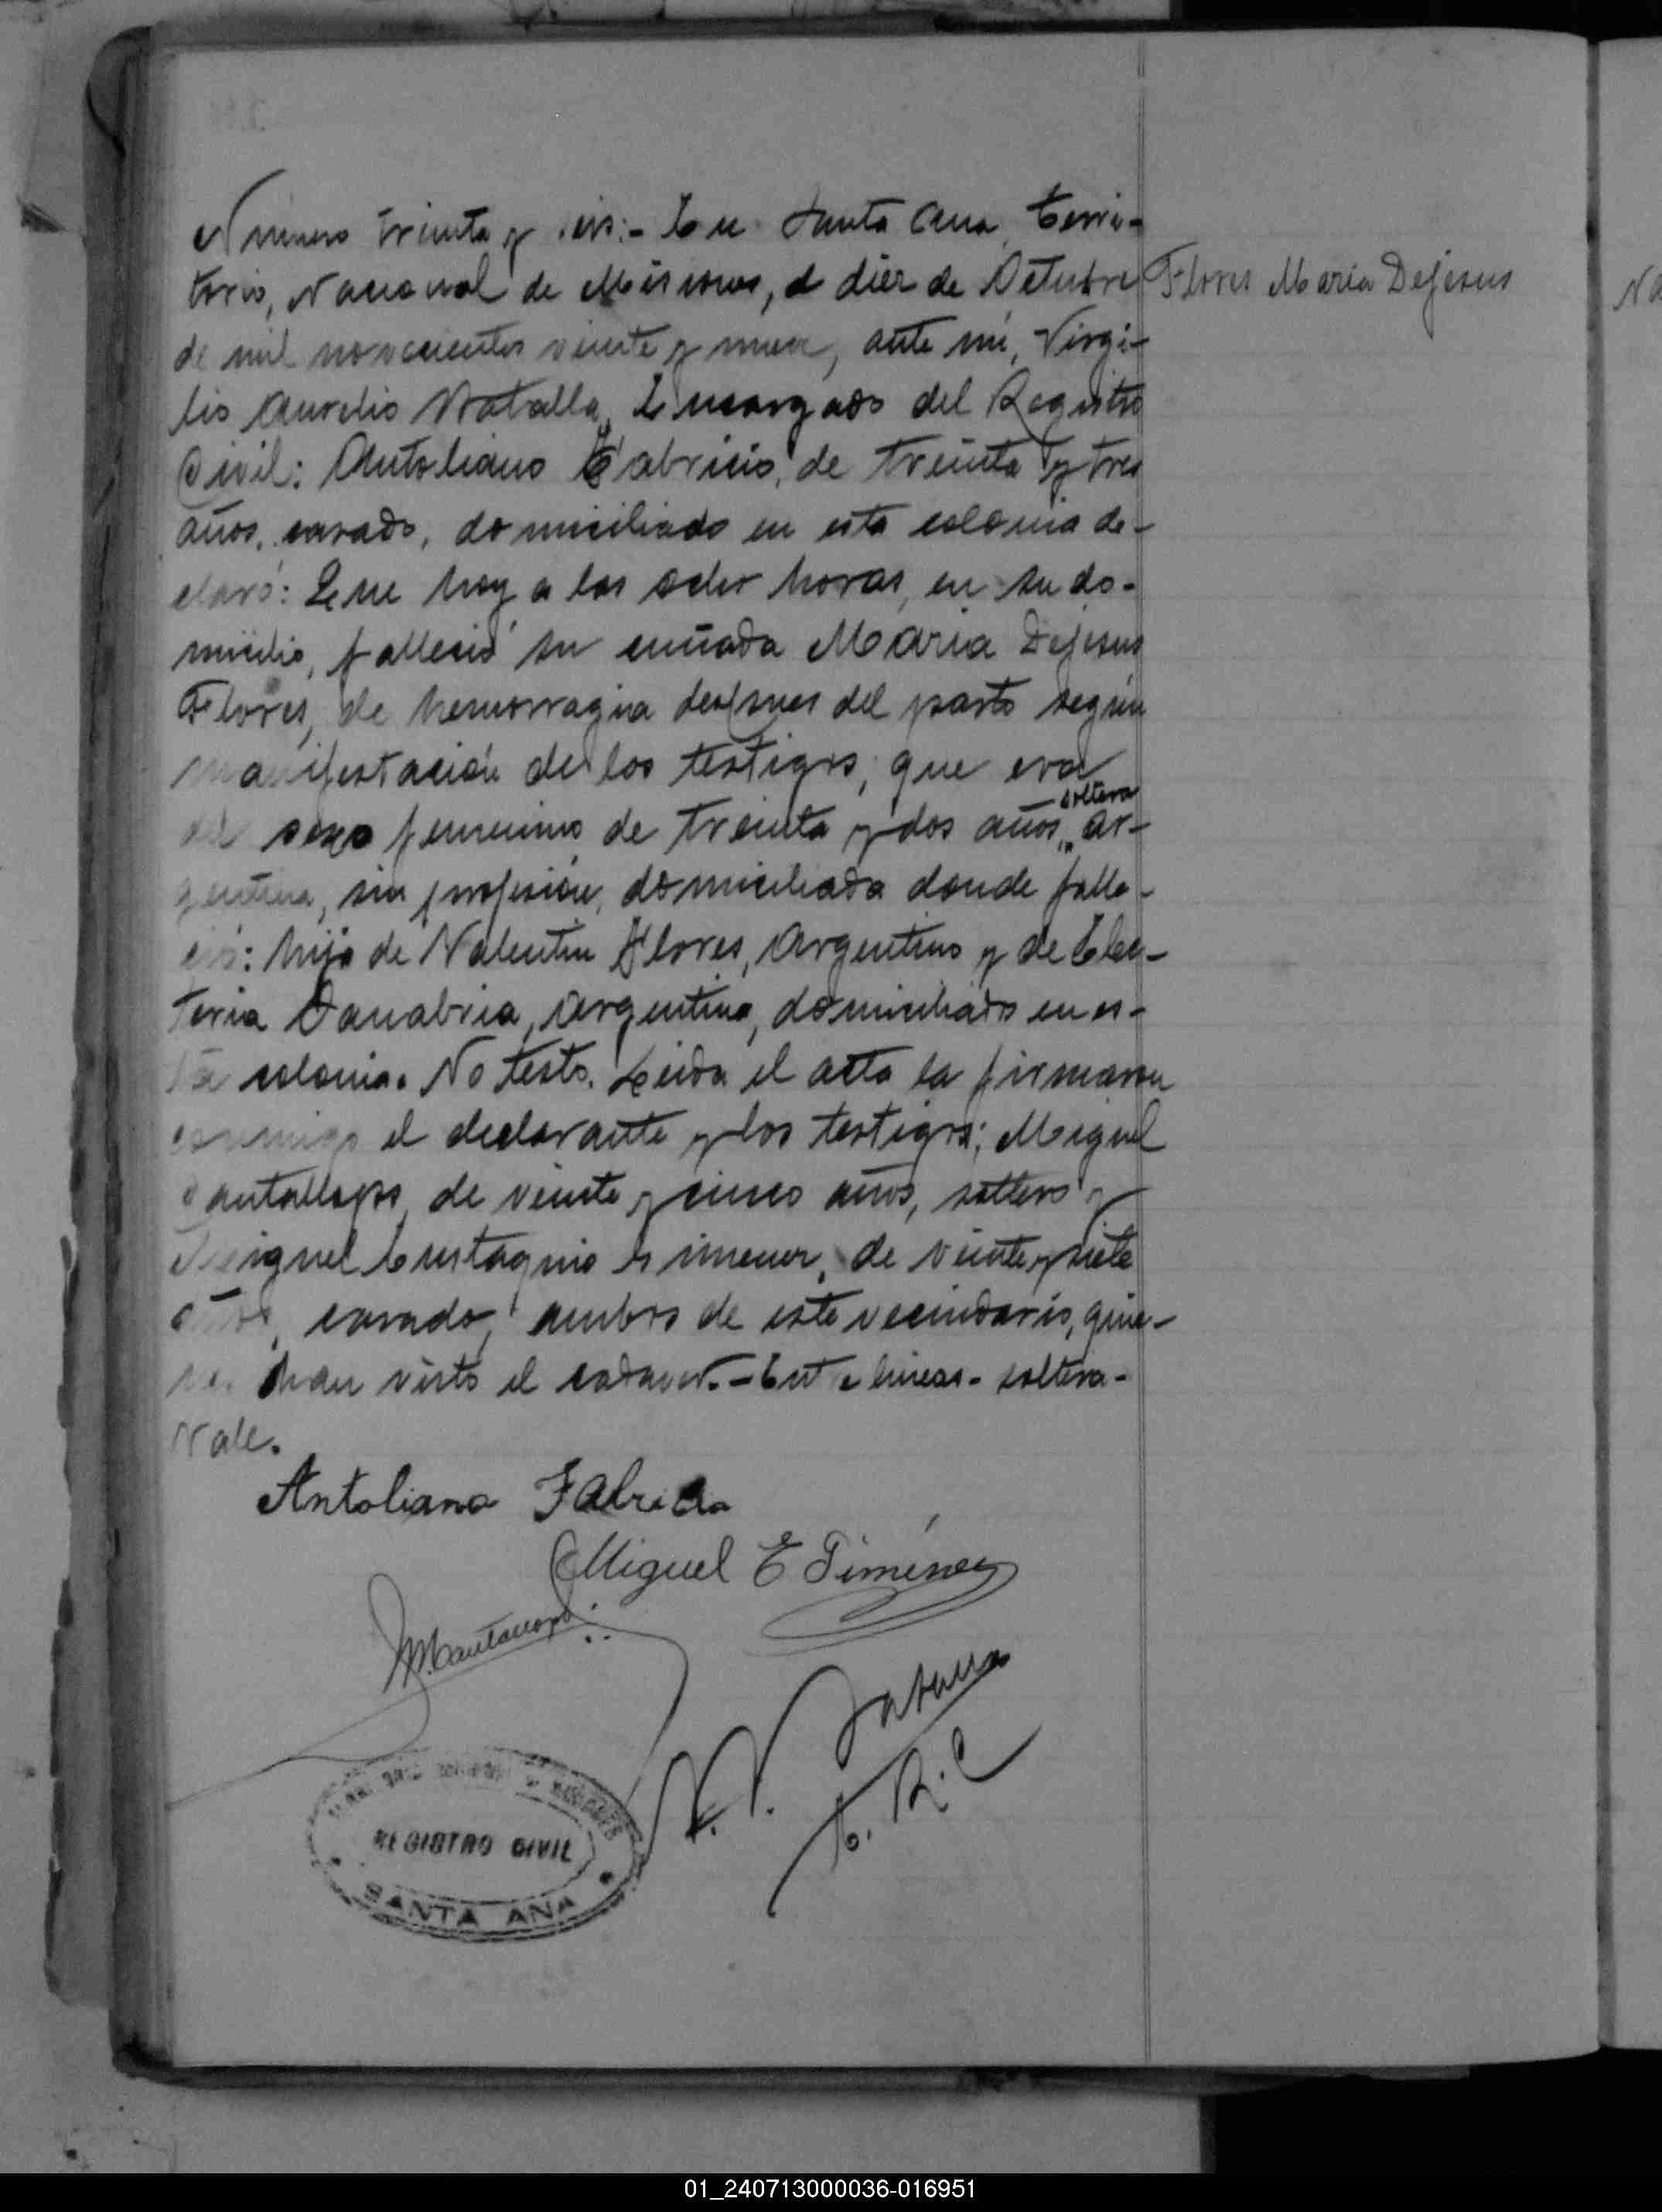 Número treinta y seis:- En Santa Ana, Terri-
torio, Nacional de Misiones, a diez de Octubre
de mil novecientos veinte y nueve, ante mí, Virgi-
lio Aurelio Natalla, Encargado del Registro
Civil: Antoliano Fabricio, de treinta y tres
años, casado, domiciliado en esta colonia de-
claró: Que hoy a las ocho horas, en su do-
micilio, falleció su cuñada María Dejesus
Flores, de hemorragia despues del parto según
manifestación de los testigos; que era
soltera
del sexo femenino de treinta y dos años, Ar-
gentina, sin profesión, domiciliada donde falle-
ció: hija de Valentin Flores, Argentino y de Eleu-
teria Sanabria, Argentina, domiciliados en es-
ta colonia. No testó. Leida el acta la firmaron
conmigo el declarante y los testigos: Miguel
Santallops de veinte y cinco años, soltero y
Miguel Eustaquio Jimenez, de veinte y siete
años, casado, ambos de este vecindario, quie-
nes han visto el cadaver.- Entre lineas- soltera-
Vale.
Flores María Dejesus
Antoliano Fabricio
Miguel E Jiménez
E. R. C
REGISTRO CIVIL
SANTA ANA
01_240713000036-016951